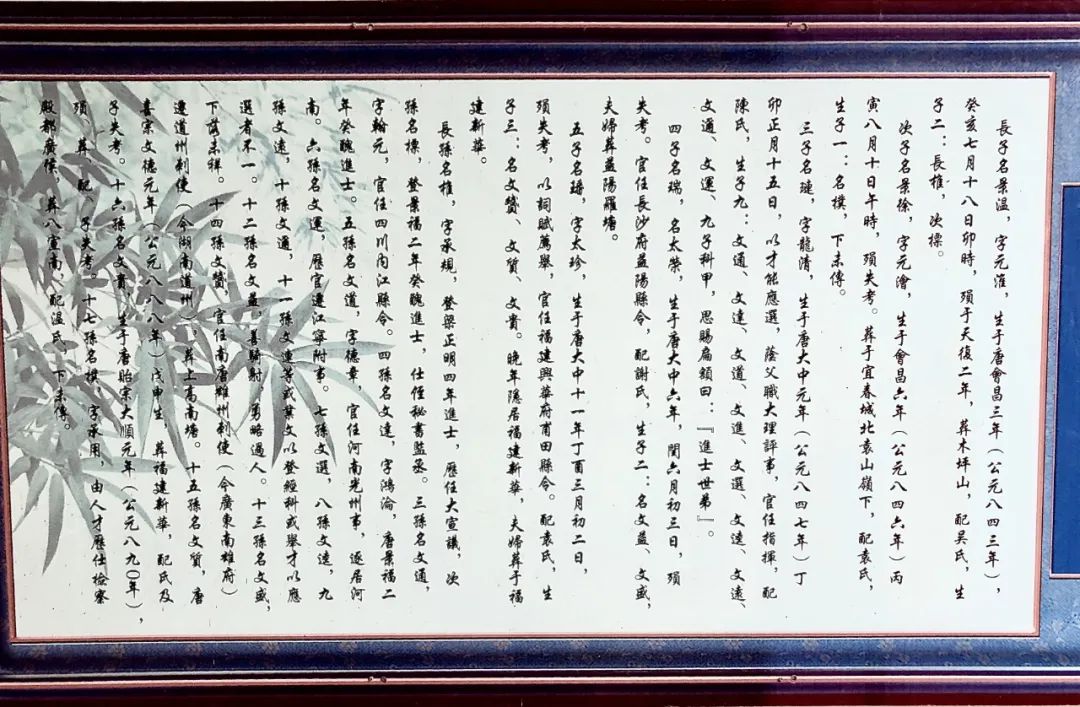 長子名景温，字元滙，生于唐會昌三年（公元八四三年），
癸亥七月十八日卯時，殞于天復二年，葬木坪山，配吴氏，生
子二：長權，次標。
次子名景徐，字元澮，生于會昌六年（公元八四六年）丙
寅八月十日午時，殞失考。葬于宜春城北袁山嶺下，配袁氏，
生子一：名樸，下未傳。
三子名璉，字龍清，生于唐大中元年（公元八四七年）丁
卯正月十五日，以才能應選，蔭父職大理評事，官任指揮，配
陳氏，生子九：文通、文達、文道、文進、文選、文逵、文遠、
文邇、文運、九子科甲，思賜扁額曰：『進士世弟』。
四子名瑞，名太榮，生于唐大中六年，閏六月初三日，殞
失考。官任長沙府益陽縣令，配謝氏，生子二：名文益、文盛，
夫婦葬益陽羅塘。
五子名璠，字太珍，生于唐大中十一年丁酉三月初二日，
殞失考，以詞賦薦舉，官任福建興華府甫田縣令。配袁氏，生
子三：名文贊、文質、文貴。晚年隱居福建新華，夫婦葬于福
建新華。
長孫名權，字承規，登梁正明四年進士，歷任大宣議，次
孫名標，登景福二年癸醜進士，仕侄秘書監丞。三孫名文通，
字翰元，官任四川内江縣令。四孫名文達，字鴻淪，唐景福二
年癸醜進士。五孫名文道，字德章，官任河南光州事，逐居河
南。六孫名文運，歷官遷江寧附事。七孫文選，八孫文逵，九
孫文遠，十孫文邇，十一孫文連等或業文以登經科或舉才以應
選者不一。十二孫名文益，善騎射，勇略過人。十三孫名文盛，
下落未祥。十四孫文贊，官任南唐雄州刺使（今廣東南雄府）
遷道州刺使（今湖南道州），葬上高南塘。十五孫名文質，唐
喜宗文德元年（公元八八八年）戊申生，葬福建新華，配氏及
子失考。十六孫名文貴，生于唐貽宗大順元年（公元八九〇年），
殞、葬、配、子失考。十七孫名樸，字承用，由人才歷仕檢察
殿都廣候，葬八宣南，配温氏，下未傳。